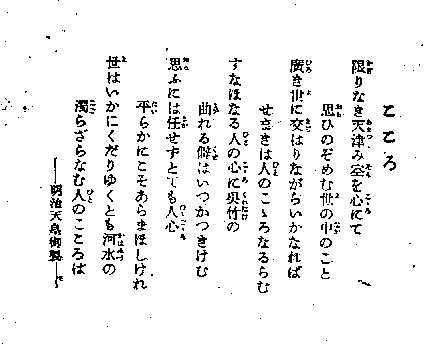 こころ
限りなき天津み空を心にて
思ひのぞめむ世の中のこと
廣き世に交はりながらいかなれば
せまきは人のこゝろなるらむ
すなほなる人の心に呉竹の
曲れる僻はいつかつきけむ
思ふには任せずとても人心
平らかにこそあらまほしけれ
世はいかにくだりゆくとも河水の
濁らざらなむ人のこころは
——明治天皇御製——